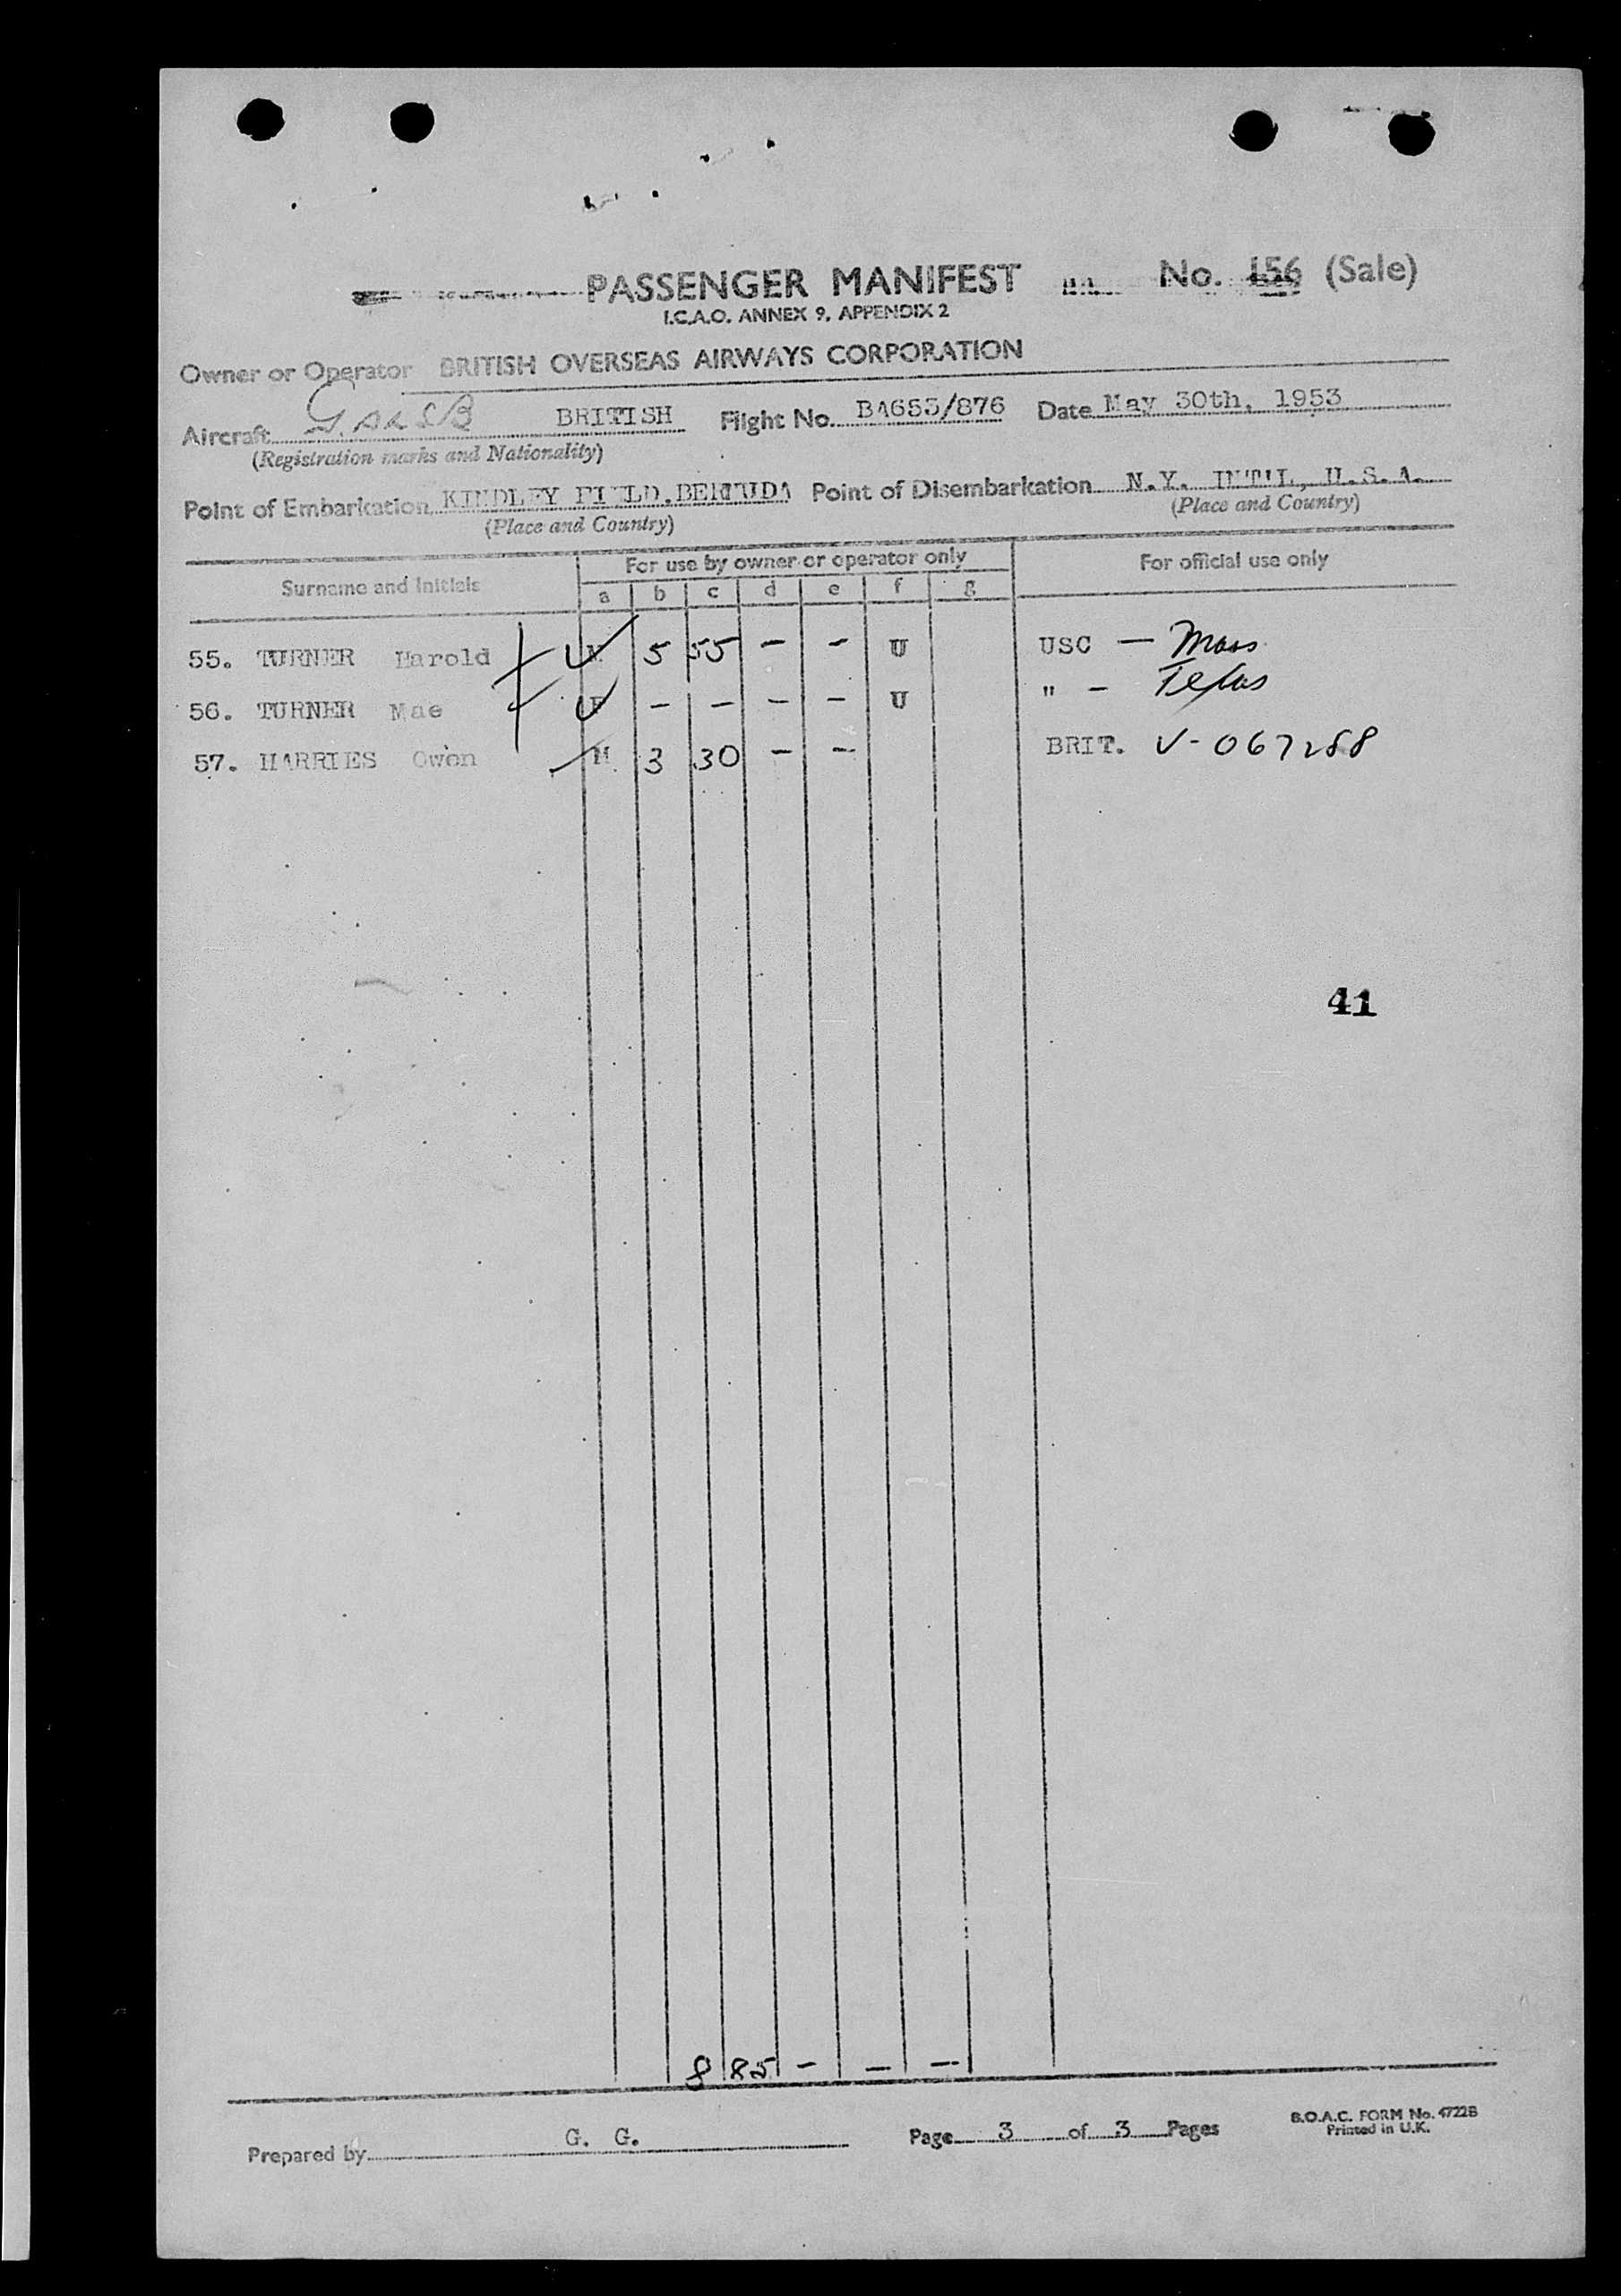 PASSENGER MANIFEST No. 156 (Sale)
I.C.A.O. ANNEX 9, APPENDIX 2
Owner or Operator BRITISH OVERSEAS AIRWAYS CORPORATION
Aircraft BRITISH Flight No. BA653/876 Date May 30th, 1953
(Registration marks and Nationality)
Point of Embarkation KINDLEY FIELD, BERMUDA Point of Disembarkation N.Y. INT'L, U.S.A.
(Place and Country) (Place and Country)
Surname and Initials For use by owner or operator only For official use only
a b c d e f g
55. TURNER Harold M 5 55 - - U USC - Mass
56. TURNER Mae F - - - - U " - Texas
57. HARRIES Owen M 3 30 - - BRIT. V-067288
41
8 85 - - -
Prepared by G. G. Page 3 of 3 Pages
B.O.A.C. FORM No. 4722B
Printed in U.K.